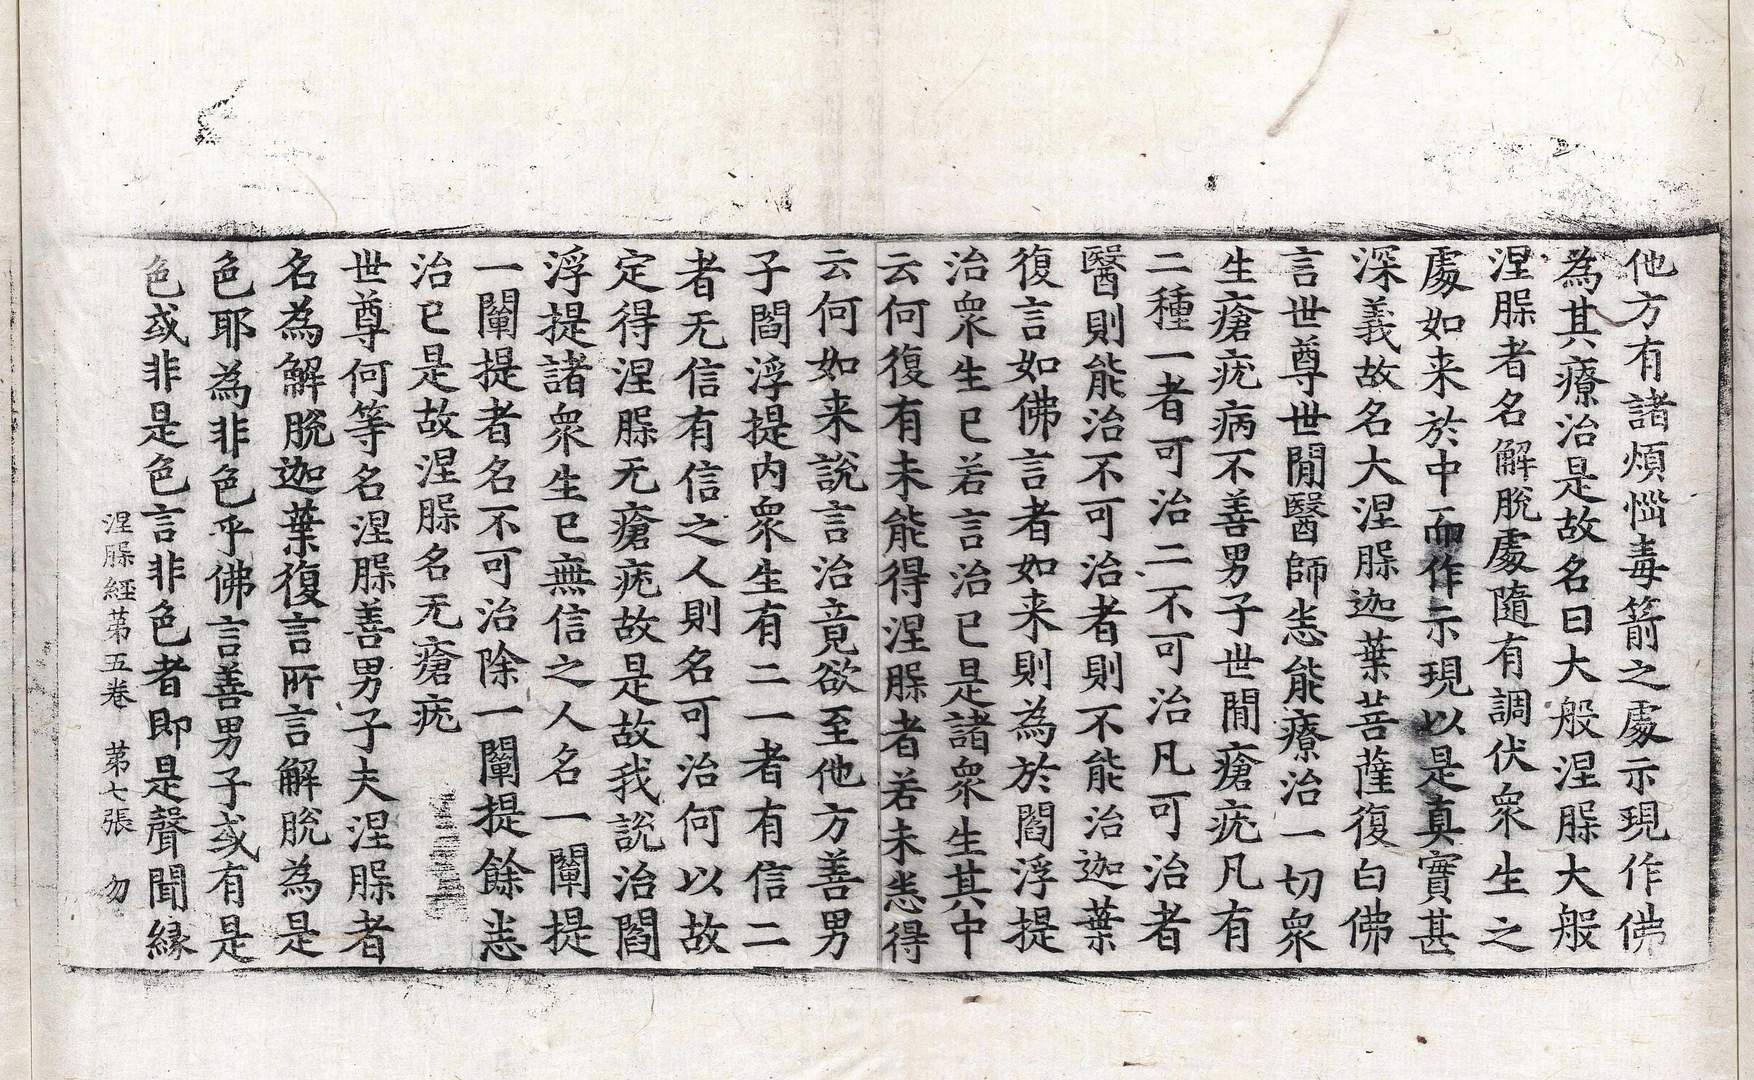 他方有諸煩惱毒箭之處示現作佛
為其療治是故名曰大般涅槃大般
涅槃者名解脫處隨有調伏衆生之
處如来於中而作示現以是真實甚
深義故名大涅槃迦葉菩薩復白佛
言世尊世閒醫師悉能療治一切衆
生瘡疣病不善男子世閒瘡疣凡有
二種一者可治二不可治凡可治者
醫則能治不可治者則不能治迦葉
復言如佛言者如来則為於閻浮提
治衆生已若言治已是諸衆生其中
云何復有未能得涅槃者若未悉得
云何如来說言治竟欲至他方善男
子閻浮提内衆生有二一者有信二
者无信有信之人則名可治何以故
定得涅槃无瘡疣故是故我說治閻
浮提諸衆生已無信之人名一闡提
一闡提者名不可治除一闡提餘悉
治已是故涅槃名无瘡疣
世尊何等名涅槃善男子夫涅槃者
名為解脫迦葉復言所言解脫為是
色耶為非色乎佛言善男子或有是
色或非是色言非色者即是聲聞縁
涅槃經第五卷 第七張 勿